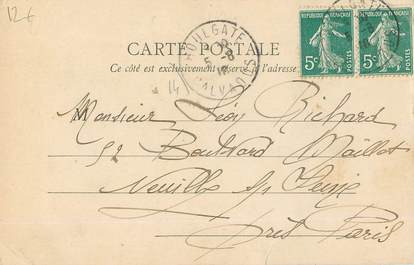 12€
CARTE POSTALE
Ce côté est exclusivement réservé à l'adresse
HOULGATE
CALVADOS
REPUBLIQUE FRANÇAISE
5c POSTES
REPUBLIQUE FRANÇAISE
5c POSTES
14
Monsieur Léon Richard
52 Boulevard Maillot
Neuilly s/ Seine
près Paris